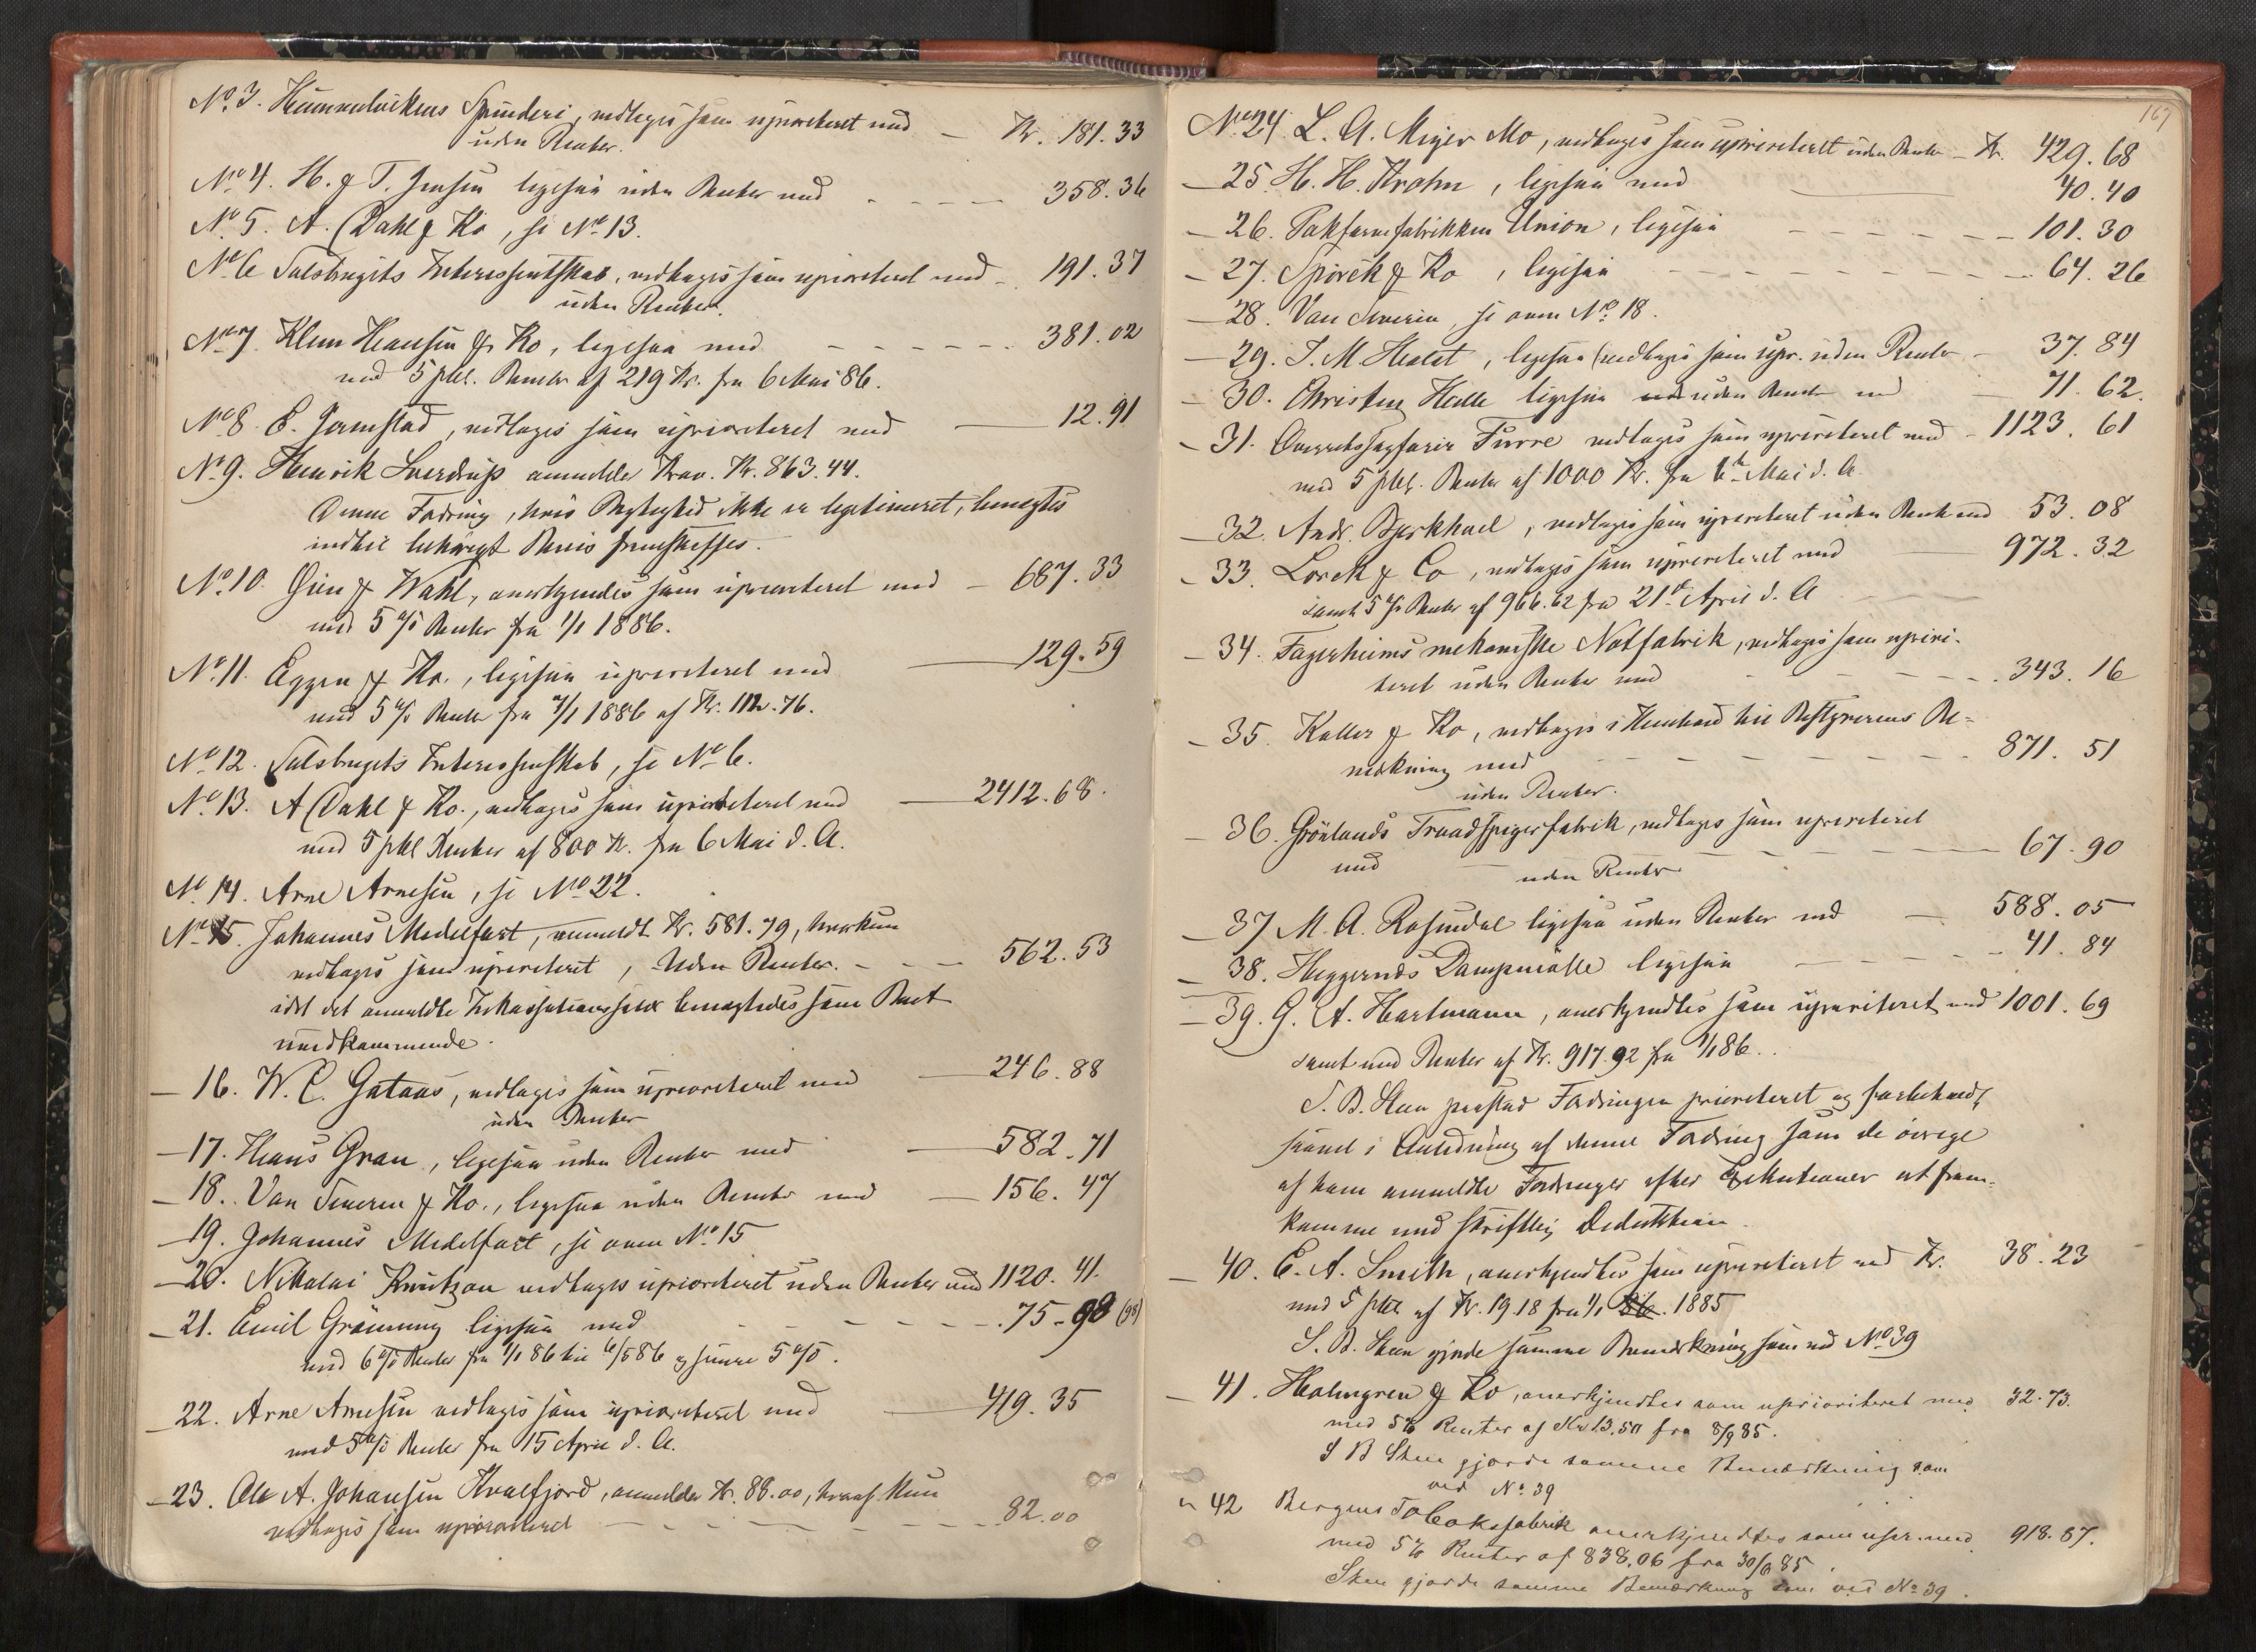 No 3. Spinderi, vedtages som uprioriteret med — Kr. 181.33
uden Renter.
No 4. H. & T. Jensen ligesaa uden Renter med - - - - 358.36
No 5. A. Dahl & Ko, se No 13.
No 6 Salsbrugets Interessentskab, vedtages som uprioriteret med - 191.37
uden Renter.
No 7. Klem Hansen & Ko, ligesaa med - - - - - - 381.02
med 5 pCt. Renter af 219 Kr. fra 6 Mai 86.
No 8. E. Jamstad, vedtages som uprioriteret med — 12.91
No 9. Henrik Sverdrup anmeldte Krav. Kr. 863.44.
Denne Fordring, hvis Rigtighed ikke er legitimeret, benegtes
indtil behørigt Bevis fremskaffes.
No 10. Øien & Wahl, anerkjendes som uprioriteret med — 687.33
med 5 % Renter fra 1/1 1886.
No 11. Eggen & Ko., ligesaa uprioriteret med — 129.59
med 5 % Renter fra 1/1 1886 af Kr. 112.76.
No 12. Salsbrugets Interessentskab, se No 6.
No 13. A Dahl & Ko., vedtages som uprioriteret med — 2412.68.
med 5 pCt Renter af 800 Kr. fra 6 Mai d. A.
No 14. Arne Arnesen, se No 22.
No 15. Johannes Medelfart, anmeldt Kr. 581.79, hvorkun
vedtages som uprioriteret, Uden Renter. - - - 562.53
idet det anmeldte Inkassationssalær benegtedes som Boet
uvedkommende.
— 16. W. C. Gataas, vedtages som uprioriteret med — 246.88
uden Renter
— 17. Hans Grau, ligesaa uden Renter med — 582.71
— 18. Van Severen & Ko., ligesaa uden Renter med — 156.47
— 19. Johannes Medelfart, se oven No 15
— 20. Nikolai Knutzon vedtages uprioriteret uden Renter med 1120.41.
— 21. Emil Grønning ligesaa med - - - - - - 75-98 (98)
med 6 % Renter fra 1/1 86 til 6/5 86 og senere 5 %.
— 22. Arne Arnesen vedtages som uprioriteret med — 419.35
med 5 % Renter fra 15 April d. A.
— 23. Ole A. Johansen Kvalfjord, anmeldte Kr. 88.00, hvoraf kun
vedtages som uprioriteret - - - - - 82.00
167
No 24. L. A. Meyer Mo, vedtages som uprioriteret uden Renter — Kr. 429.68
— 25. H. H. Krohn, ligesaa med — 40.40
— 26. Taksernefabrikken Union, ligesaa - - - - - - 101.30
— 27. Spörck & Ko, ligesaa - - - - - - - - 64.26
— 28. Van Severen, se oven No 18.
— 29. J. M. Holst, ligesaa (vedtages som upr. uden Renter - 37.84
— 30. Christen Halle ligesaa uden Renter med — 71.62.
— 31. Overretssagfører Furre vedtages som uprioriteret med - 1123.61
med 5 pCt. Renter af 1000 Kr. fra 6te Mai d. A.
— 32. Andr. Bjerkhoel, vedtages som uprioriteret uden Rente med 53.08
— 33. Lorck & Co, vedtages som uprioriteret med — 972.32
samt 5 % Renter af 966.62 fra 21de April d. A
— 34. Fagerheims mekaniske Notfabrik, vedtages som upriori-
teret uden Renter med - - - - - - 343.16
— 35. Koller & Ko, vedtages i Henhold til Bestyrerens Be-
mærkning med - - - - - - - - 871.51
uden Renter.
— 36. Grönlands Traadspigerfabrik, vedtages som uprioriteret
med — uden Renter — - - - 67.90
— 37 M. A. Rosendal ligesaa uden Renter med — 588.05
— 38. Heggernes Dampmølle ligesaa - - - - - 41.84
— 39. G. A. Hartmann, anerkjendtes som uprioriteret med 1001.69
samt med Renter af Kr. 917.92 fra 1/1 86.
S. B. Steen paastod Fordringen prioriteret og forbeholdt
saavel i Anledning af denne Fordring som de øvrige
af ham anmeldte Fordringer efter Exekutioner at frem-
komme med skriftlig Deduktion.
— 40. E. A. Smith, anerkjendtes som uprioriteret med Kr. 38.23
med 5 pCt. af Kr. 19.18 fra 1/1 86. 1885
S. B. Steen gjorde samme Bemærkning som ved No 39
— 41. Holmgren & Ko, anerkjendtes som uprioriteret med 32.73.
med 5 % Renter af Kr. 13.50 fra 8/9 85.
S B Steen gjorde samme Bemærkning som
ved No 39
" 42 Bergens Tobaksfabrik anerkjendtes som upr. med 918.87.
med 5 % Renter af 838.06 fra 30/6 85.
Steen gjorde samme Bemærkning som ved No 39.